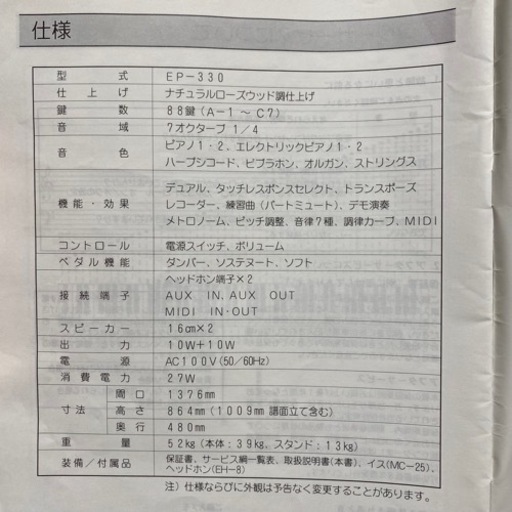 仕様
型式 EP-330
仕上げ ナチュラルローズウッド調仕上げ
鍵数 88鍵（A-1 ～ C7）
音域 7オクターブ 1/4
音色 ピアノ1・2、エレクトリックピアノ1・2
ハープシコード、ビブラホン、オルガン、ストリングス
機能・効果 デュアル、タッチレスポンスセレクト、トランスポーズ
レコーダー、練習曲（パートミュート）、デモ演奏
メトロノーム、ピッチ調整、音律7種、調律カーブ、MIDI
コントロール 電源スイッチ、ボリューム
ペダル機能 ダンパー、ソステヌート、ソフト
接続端子 ヘッドホン端子×2
AUX IN、AUX OUT
MIDI IN・OUT
スピーカー 16cm×2
出力 10W+10W
電源 AC100V(50/60Hz)
消費電力 27W
寸法 間口 1376mm
高さ 864mm（1009mm 譜面立て含む）
奥行 480mm
重量 52kg（本体：39kg、スタンド：13kg）
装備／付属品 保証書、サービス網一覧表、取扱説明書(本書)、イス(MC-25)、
ヘッドホン(EH-8)
注）仕様ならびに外観は予告なく変更することがあります。